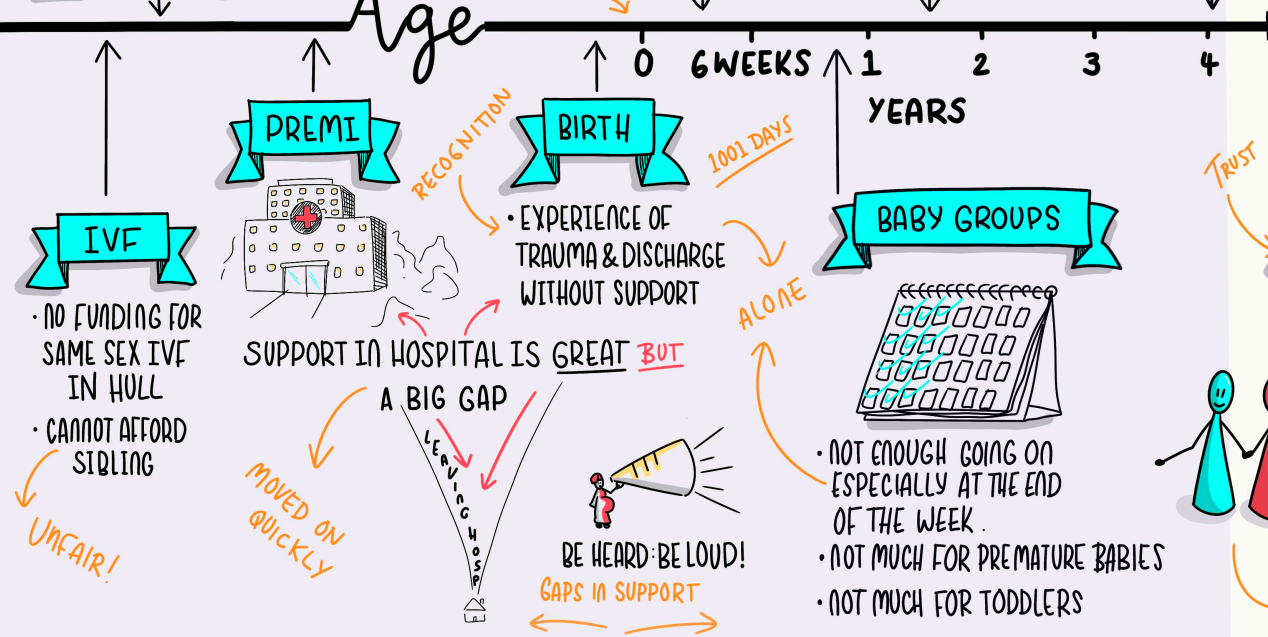 Age
0
6 WEEKS
1
2
3
4
YEARS
IVF
• NO FUNDING FOR
SAME SEX IVF
IN HULL
• CANNOT AFFORD
SIBLING
UNFAIR!
PREMI
RECOGNITION
BIRTH
1001 DAYS
• EXPERIENCE OF
TRAUMA & DISCHARGE
WITHOUT SUPPORT
ALONE
SUPPORT IN HOSPITAL IS GREAT BUT
A BIG GAP
LEAVING HOSP
MOVED ON
QUICKLY
BE HEARD: BE LOUD!
GAPS IN SUPPORT
BABY GROUPS
• NOT ENOUGH GOING ON
ESPECIALLY AT THE END
OF THE WEEK.
• NOT MUCH FOR PREMATURE BABIES
• NOT MUCH FOR TODDLERS
TRUST